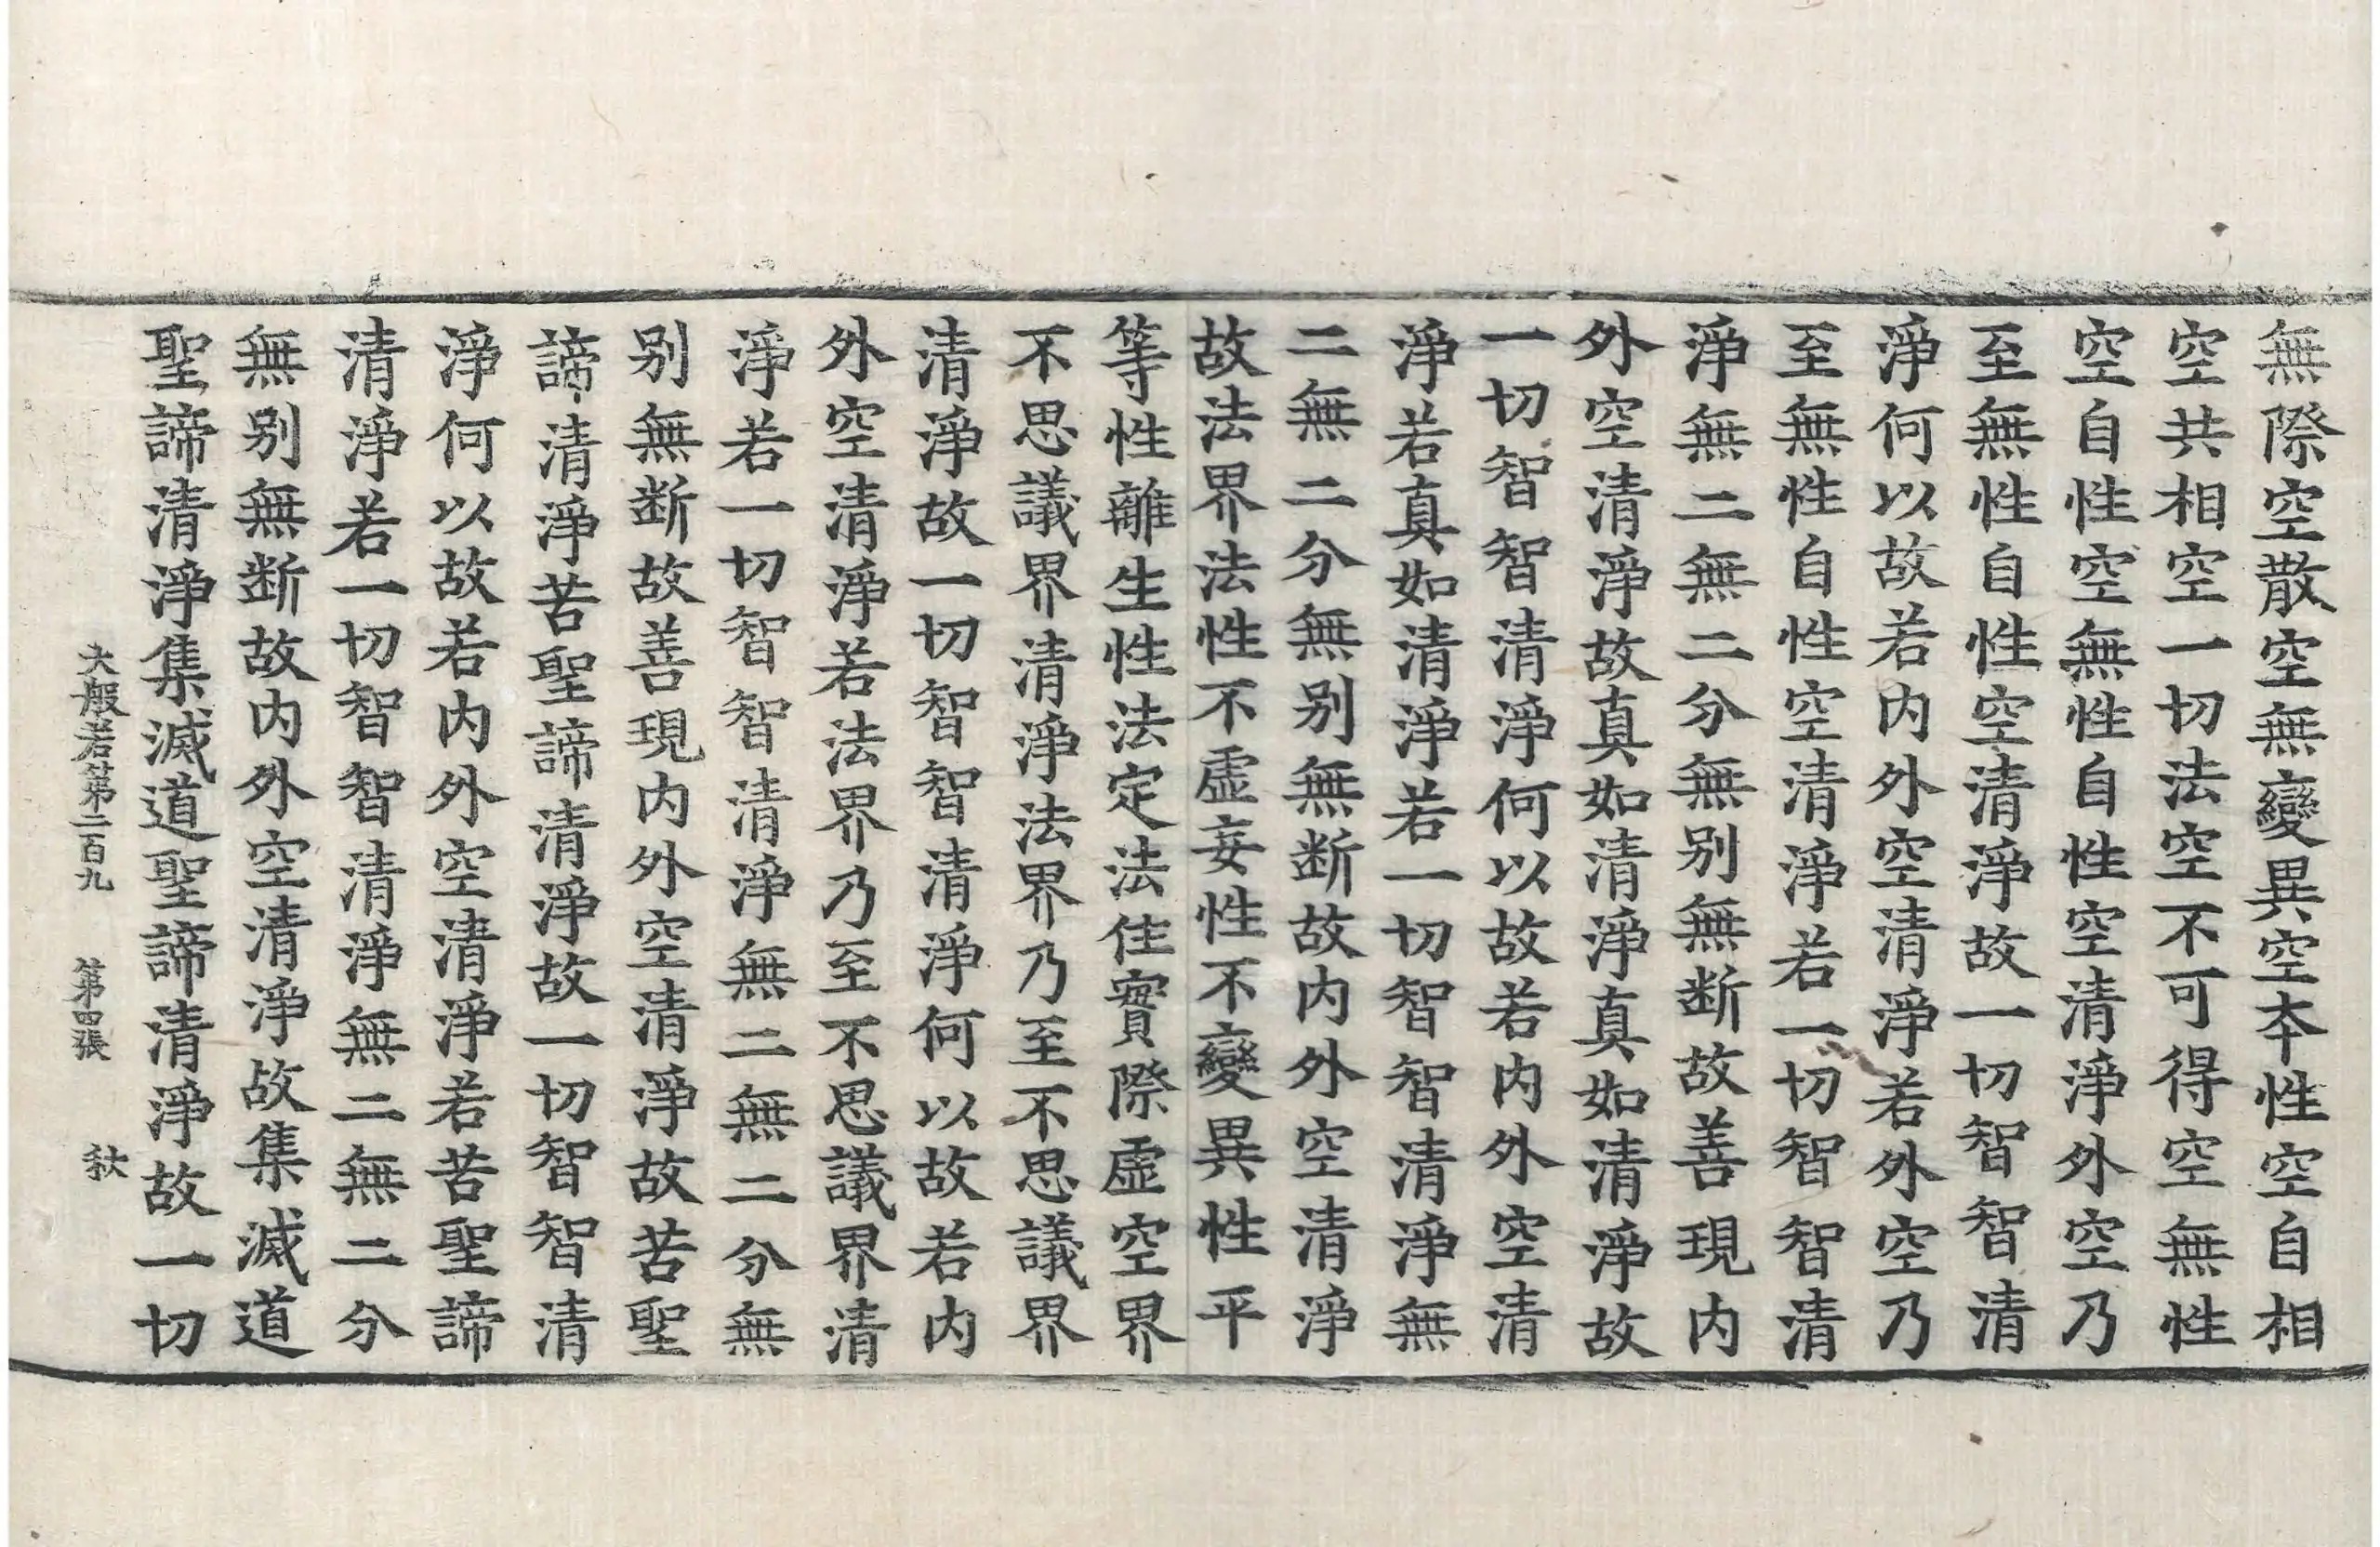 無際空散空無變異空本性空自相
空共相空一切法空不可得空無性
空自性空無性自性空清淨外空乃
至無性自性空清淨故一切智智清
淨何以故若内外空清淨若外空乃
至無性自性空清淨若一切智智清
淨無二無二分無別無斷故善現内
外空清淨故真如清淨真如清淨故
一切智智清淨何以故若内外空清
淨若真如清淨若一切智智清淨無
二無二分無別無斷故内外空清淨
故法界法性不虛妄性不變異性平
等性離生性法定法住實際虛空界
不思議界清淨法界乃至不思議界
清淨故一切智智清淨何以故若内
外空清淨若法界乃至不思議界清
淨若一切智智清淨無二無二分無
別無斷故善現内外空清淨故苦聖
諦清淨苦聖諦清淨故一切智智清
淨何以故若内外空清淨若苦聖諦
清淨若一切智智清淨無二無二分
無別無斷故内外空清淨故集滅道
聖諦清淨集滅道聖諦清淨故一切
大般若第二百九 第四張 秋